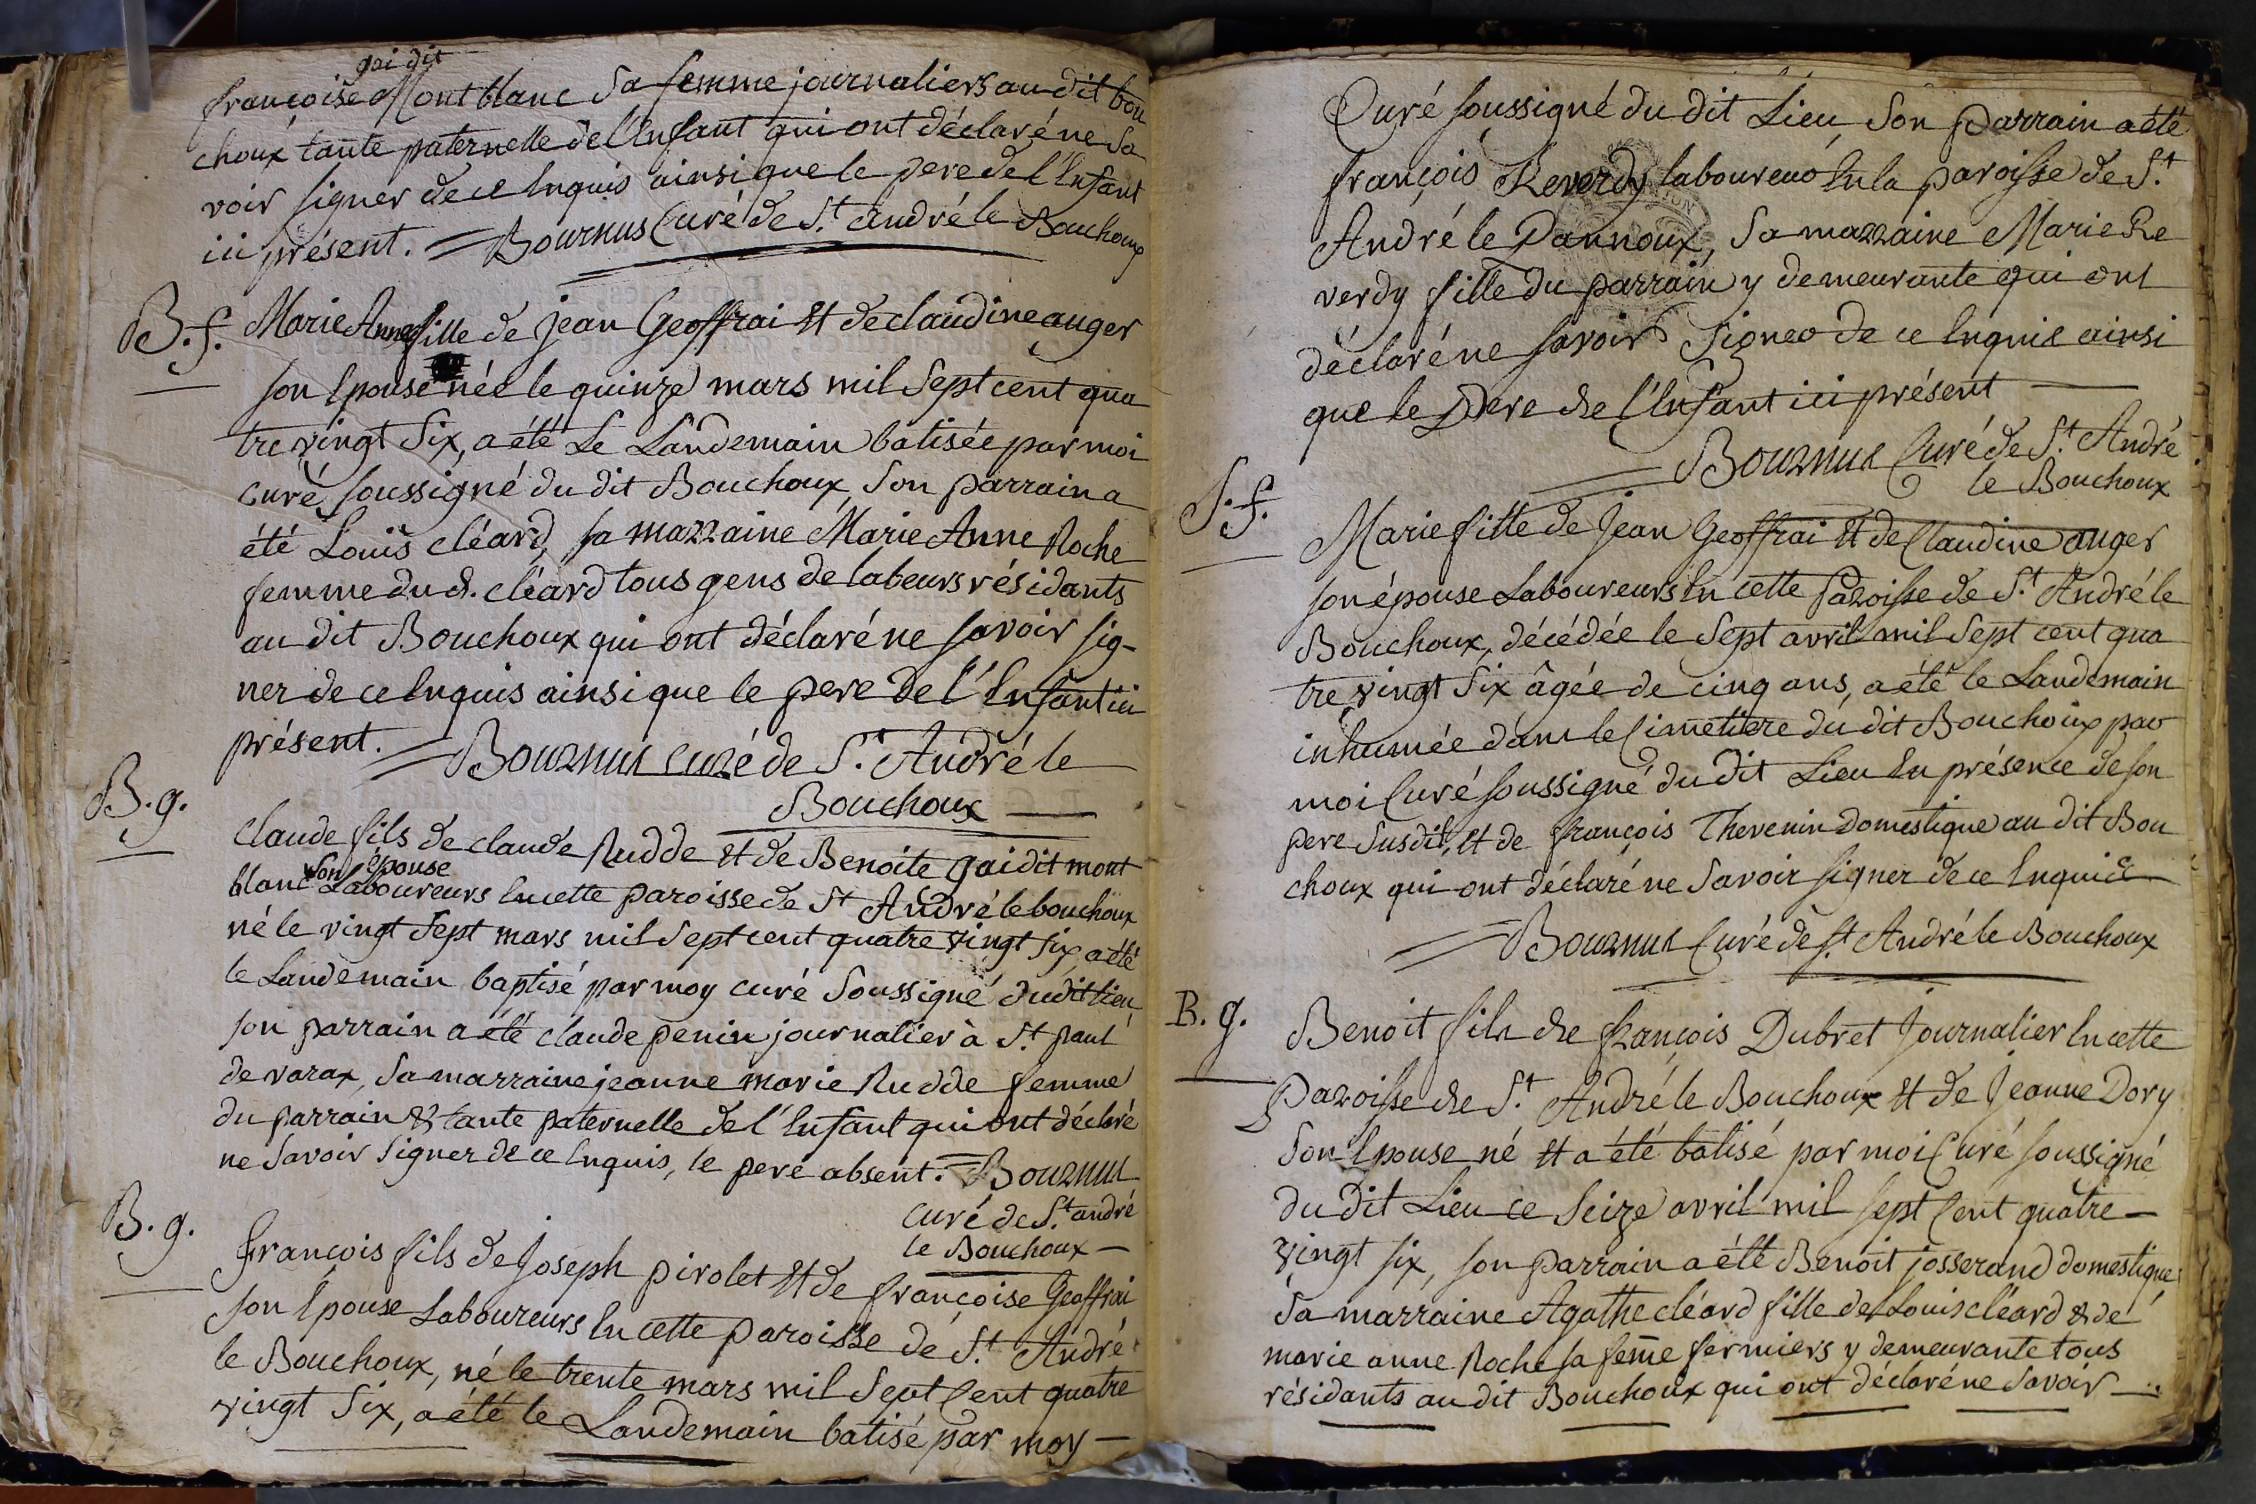 gai dit
françoise Montblanc sa femme journaliers au dit bou
choux tante paternelle de l'Enfant qui ont déclaré ne sa
voir signer de ce Enquis ainsi que le pere de l'Enfant
ici présent. = Bournus Curé de St. andré le Bouchoux
B. f. Marie Anne fille de jean Geoffrai Et de claudine auger
son Epouse née le quinze mars mil Sept cent qua
tre vingt Six, a été Le Landemain batisée par moi
curé soussigné du dit Bouchoux, son parrain a
été Louis cléard, sa marraine Marie Anne Roche
femme du d. cléard tous gens de labeurs résidants
au dit Bouchoux qui ont déclaré ne savoir sig-
ner de ce Enquis ainsi que le pere de l'Enfant ici
présent. = Bournus curé de St. André le
Bouchoux
B. g. claude fils de claude Rudde et de Benoite gai dit mont
son épouse
blanc Laboureurs En cette paroisse de St André le bouchoux
né le vingt Sept mars mil Sept cent quatre vingt six a été
le Landemain baptisé par moy curé Soussigné dudit lieu,
son parrain a été claude penin journalier à St. paul
de varax, sa marraine jeanne marie Rudde femme
du parrain & tante paternelle de l'Enfant qui ont déclaré
ne Savoir Signer de ce Enquis, le pere absent. = Bournus
curé de St. andré
le Bouchoux
B. g. François fils de Joseph pirolet Et de françoise Geoffrai
son Epouse Laboureurs En cette paroisse de St. André
le Bouchoux, né le trente mars mil Sept Cent quatre
vingt Six, a été le Landemain batisé par moy
Curé soussigné du dit Lieu son parrain a été
françois Reverdy laboureur En la paroisse de St.
André le Pannoux, sa marraine Marie Re
verdy fille du parrain y demeurante qui ont
déclaré ne savoir Signer de ce Enquis ainsi
que le Pere de l'Enfant ici présent
= Bournus Curé de St. André
le Bouchoux
S. f. Marie fille de Jean Geoffrai Et de Claudine auger
son épouse Laboureurs En cette Paroisse de St. André le
Bouchoux, décédée le Sept avril mil Sept cent qua
tre vingt Six âgée de cinq ans, a été le Landemain
inhumée dans le Cimetiere du dit Bouchoux par
moi Curé soussigné du dit Lieu En présence de son
pere Susdit, Et de françois Thevenin domestique au dit Bou
choux qui ont déclaré ne Savoir signer de ce Enquis
= Bournus Curé de St. André le Bouchoux
B. g. Benoit fils de françois Dubret Journalier En cette
Paroisse de St. André le Bouchoux Et de Jeanne Dory
Son Epouse né Et a été batisé par moi Curé soussigné
du dit Lieu ce Seize avril mil sept Cent quatre
vingt six, son parrain a été Benoit josserand domestique,
sa marraine Agathe cléard fille de Louis cléard & de
marie anne Roche sa feme fermiers y demeurante tous
résidants au dit Bouchoux qui ont déclaré ne savoir